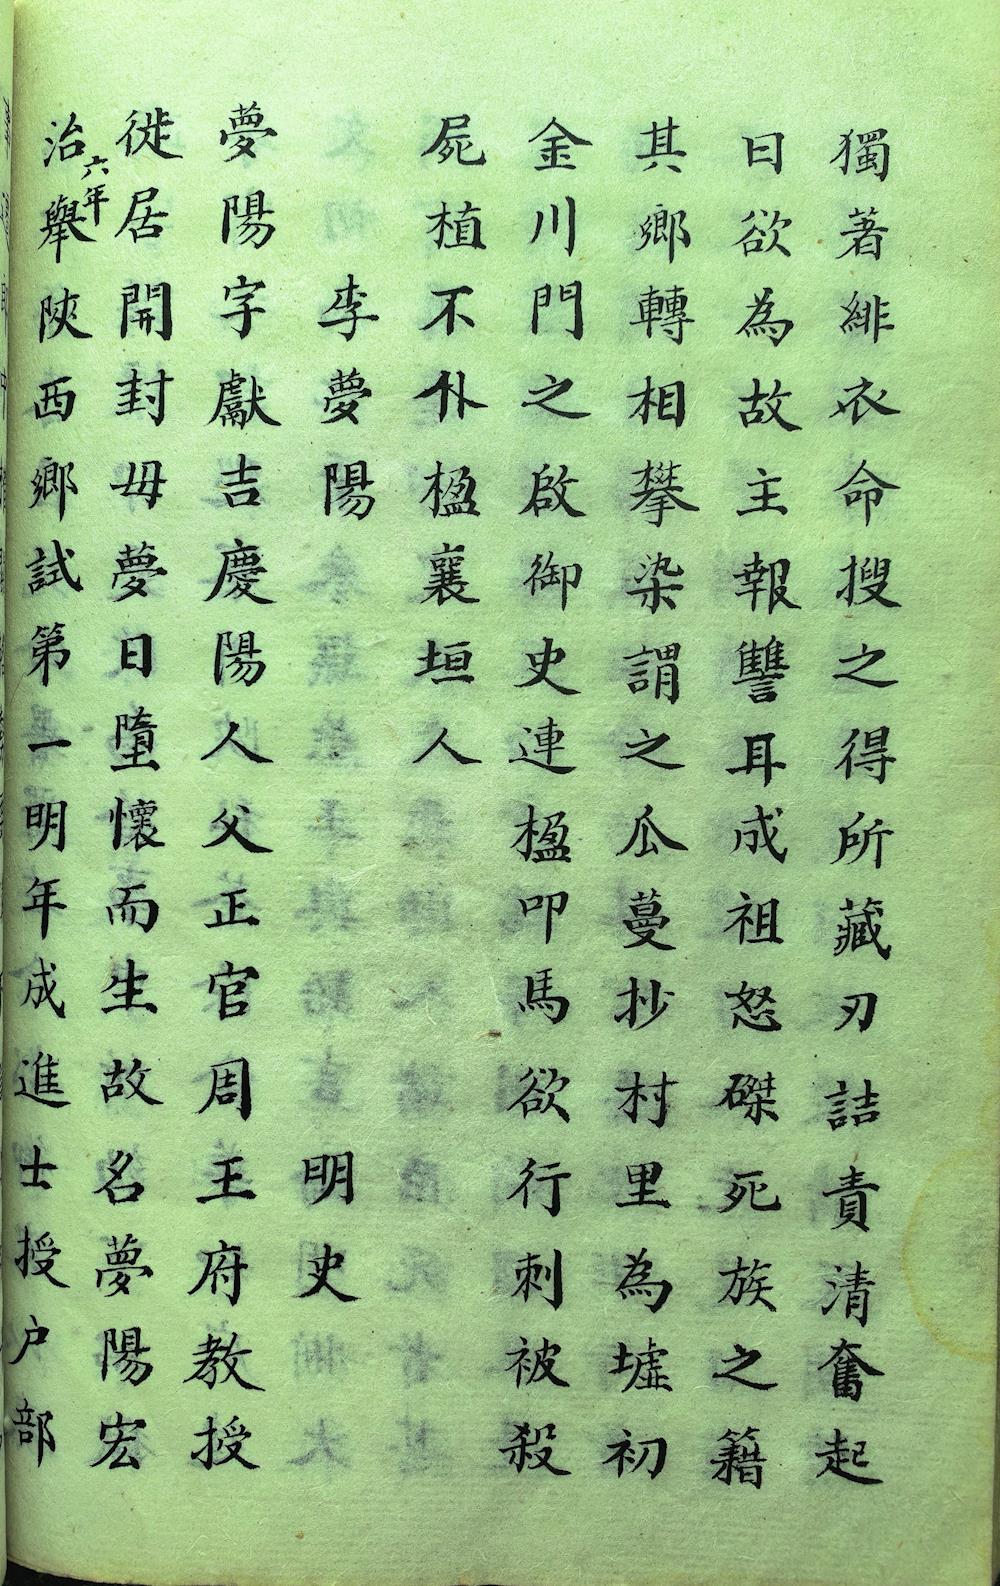 獨著緋衣命搜之得所藏刃詰責清奮起
曰欲為故主報讐耳成祖怒磔死族之籍
其鄉轉相攀染謂之瓜蔓抄村里為墟初
金川門之啟御史連楹叩馬欲行刺被殺
屍植不仆楹襄垣人
李夢陽 明史
夢陽字獻吉慶陽人父正官周王府教授
徙居開封母夢日墮懷而生故名夢陽宏
治六年舉陝西鄉試第一明年成進士授户部